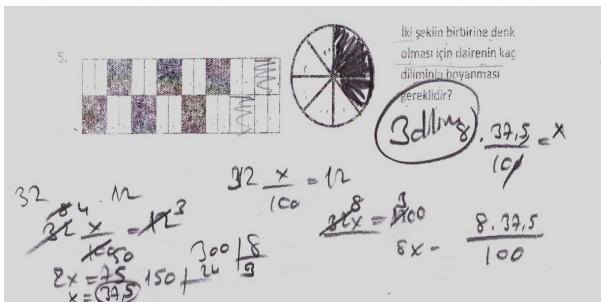 5.
İki şeklin birbirine denk
olması için dairenin kaç
diliminin boyanması
gereklidir?
3 dilim
8 · 37,5 / 100 = x
32 · 12
32 x/100 = 12
32 x/100 = 12
4 50 3
2x = 75
x = 37,5
300 | 8
150
24
3
32x = 1200
8 3
8x =
8 · 37,5 / 100